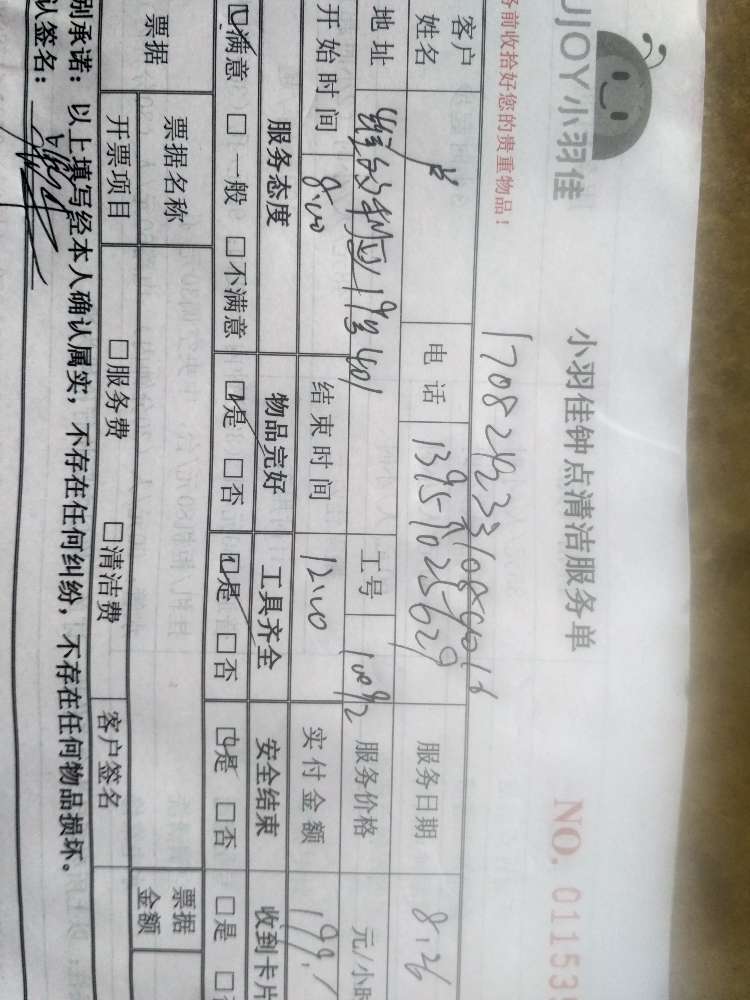 UJOY小羽佳
小羽佳钟点清洁服务单
NO. 01153
务前收拾好您的贵重物品!
客户姓名 电话 服务日期 8.26
地址 1号401 工号 服务价格 元/小时
开始时间 8:00 结束时间 12:00 实付金额
服务态度 物品完好 工具齐全 安全结束 收到卡片
☑满意 □一般 □不满意 ☑是 □否 ☑是 □否 ☑是 □否 □是
票据 票据名称 票据金额
开票项目 □服务费 □清洁费 客户签名
别承诺:以上填写经本人确认属实,不存在任何纠纷,不存在任何物品损坏。
认签名: